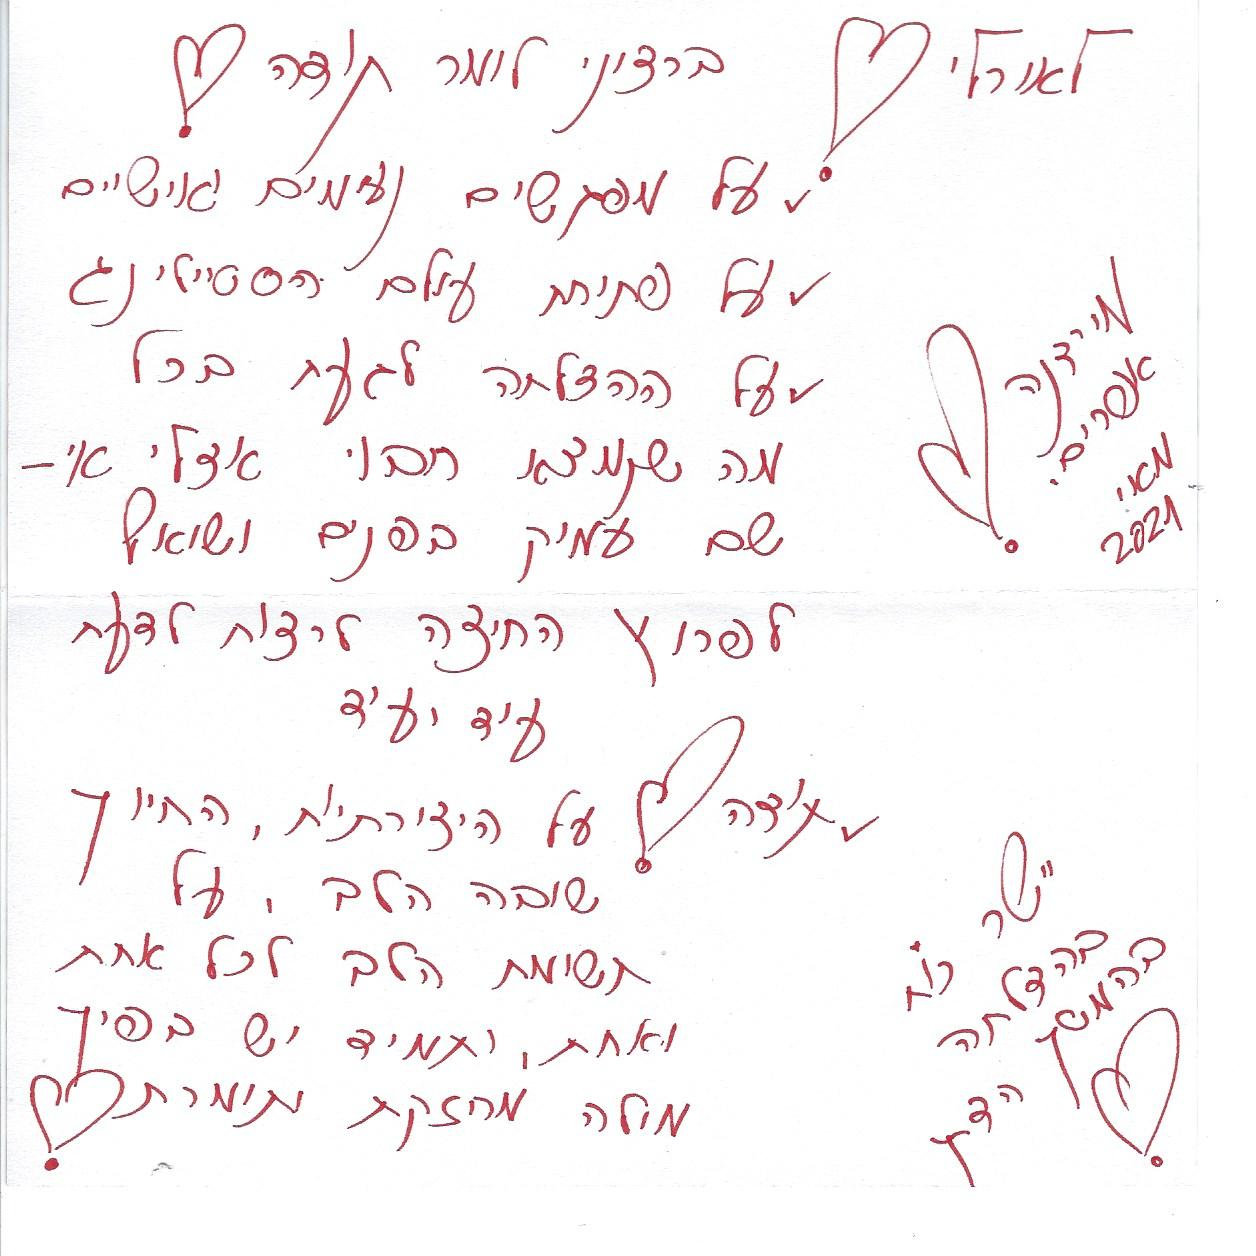 לאורלי
ברצוני לומר תודה
על מפגשים נעימים ואישיים
על פתיחת עולם הסטיילינג
על ההצלחה לגעת בכל
מה שנמצא חבוי אצלי אי-
שם עמוק בפנים ושואף
לפרוץ החוצה לרצות לדעת
עוד ועוד
תודה על היצירתיות, החיוך
שובה הלב, על
תשומת הלב לכל אחת
ואחת, ותמיד יש בפיך
מילה מחזקת ותומכת
מירנה
אפרים.
מאי
2021
יישר
כוח
בהצלחה
בהמשך
הדרך